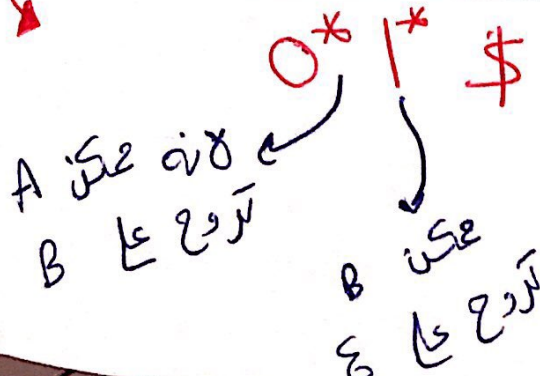 0* 1* $
لانه ممكن A
تروح على B
ممكن B
تروح على ε